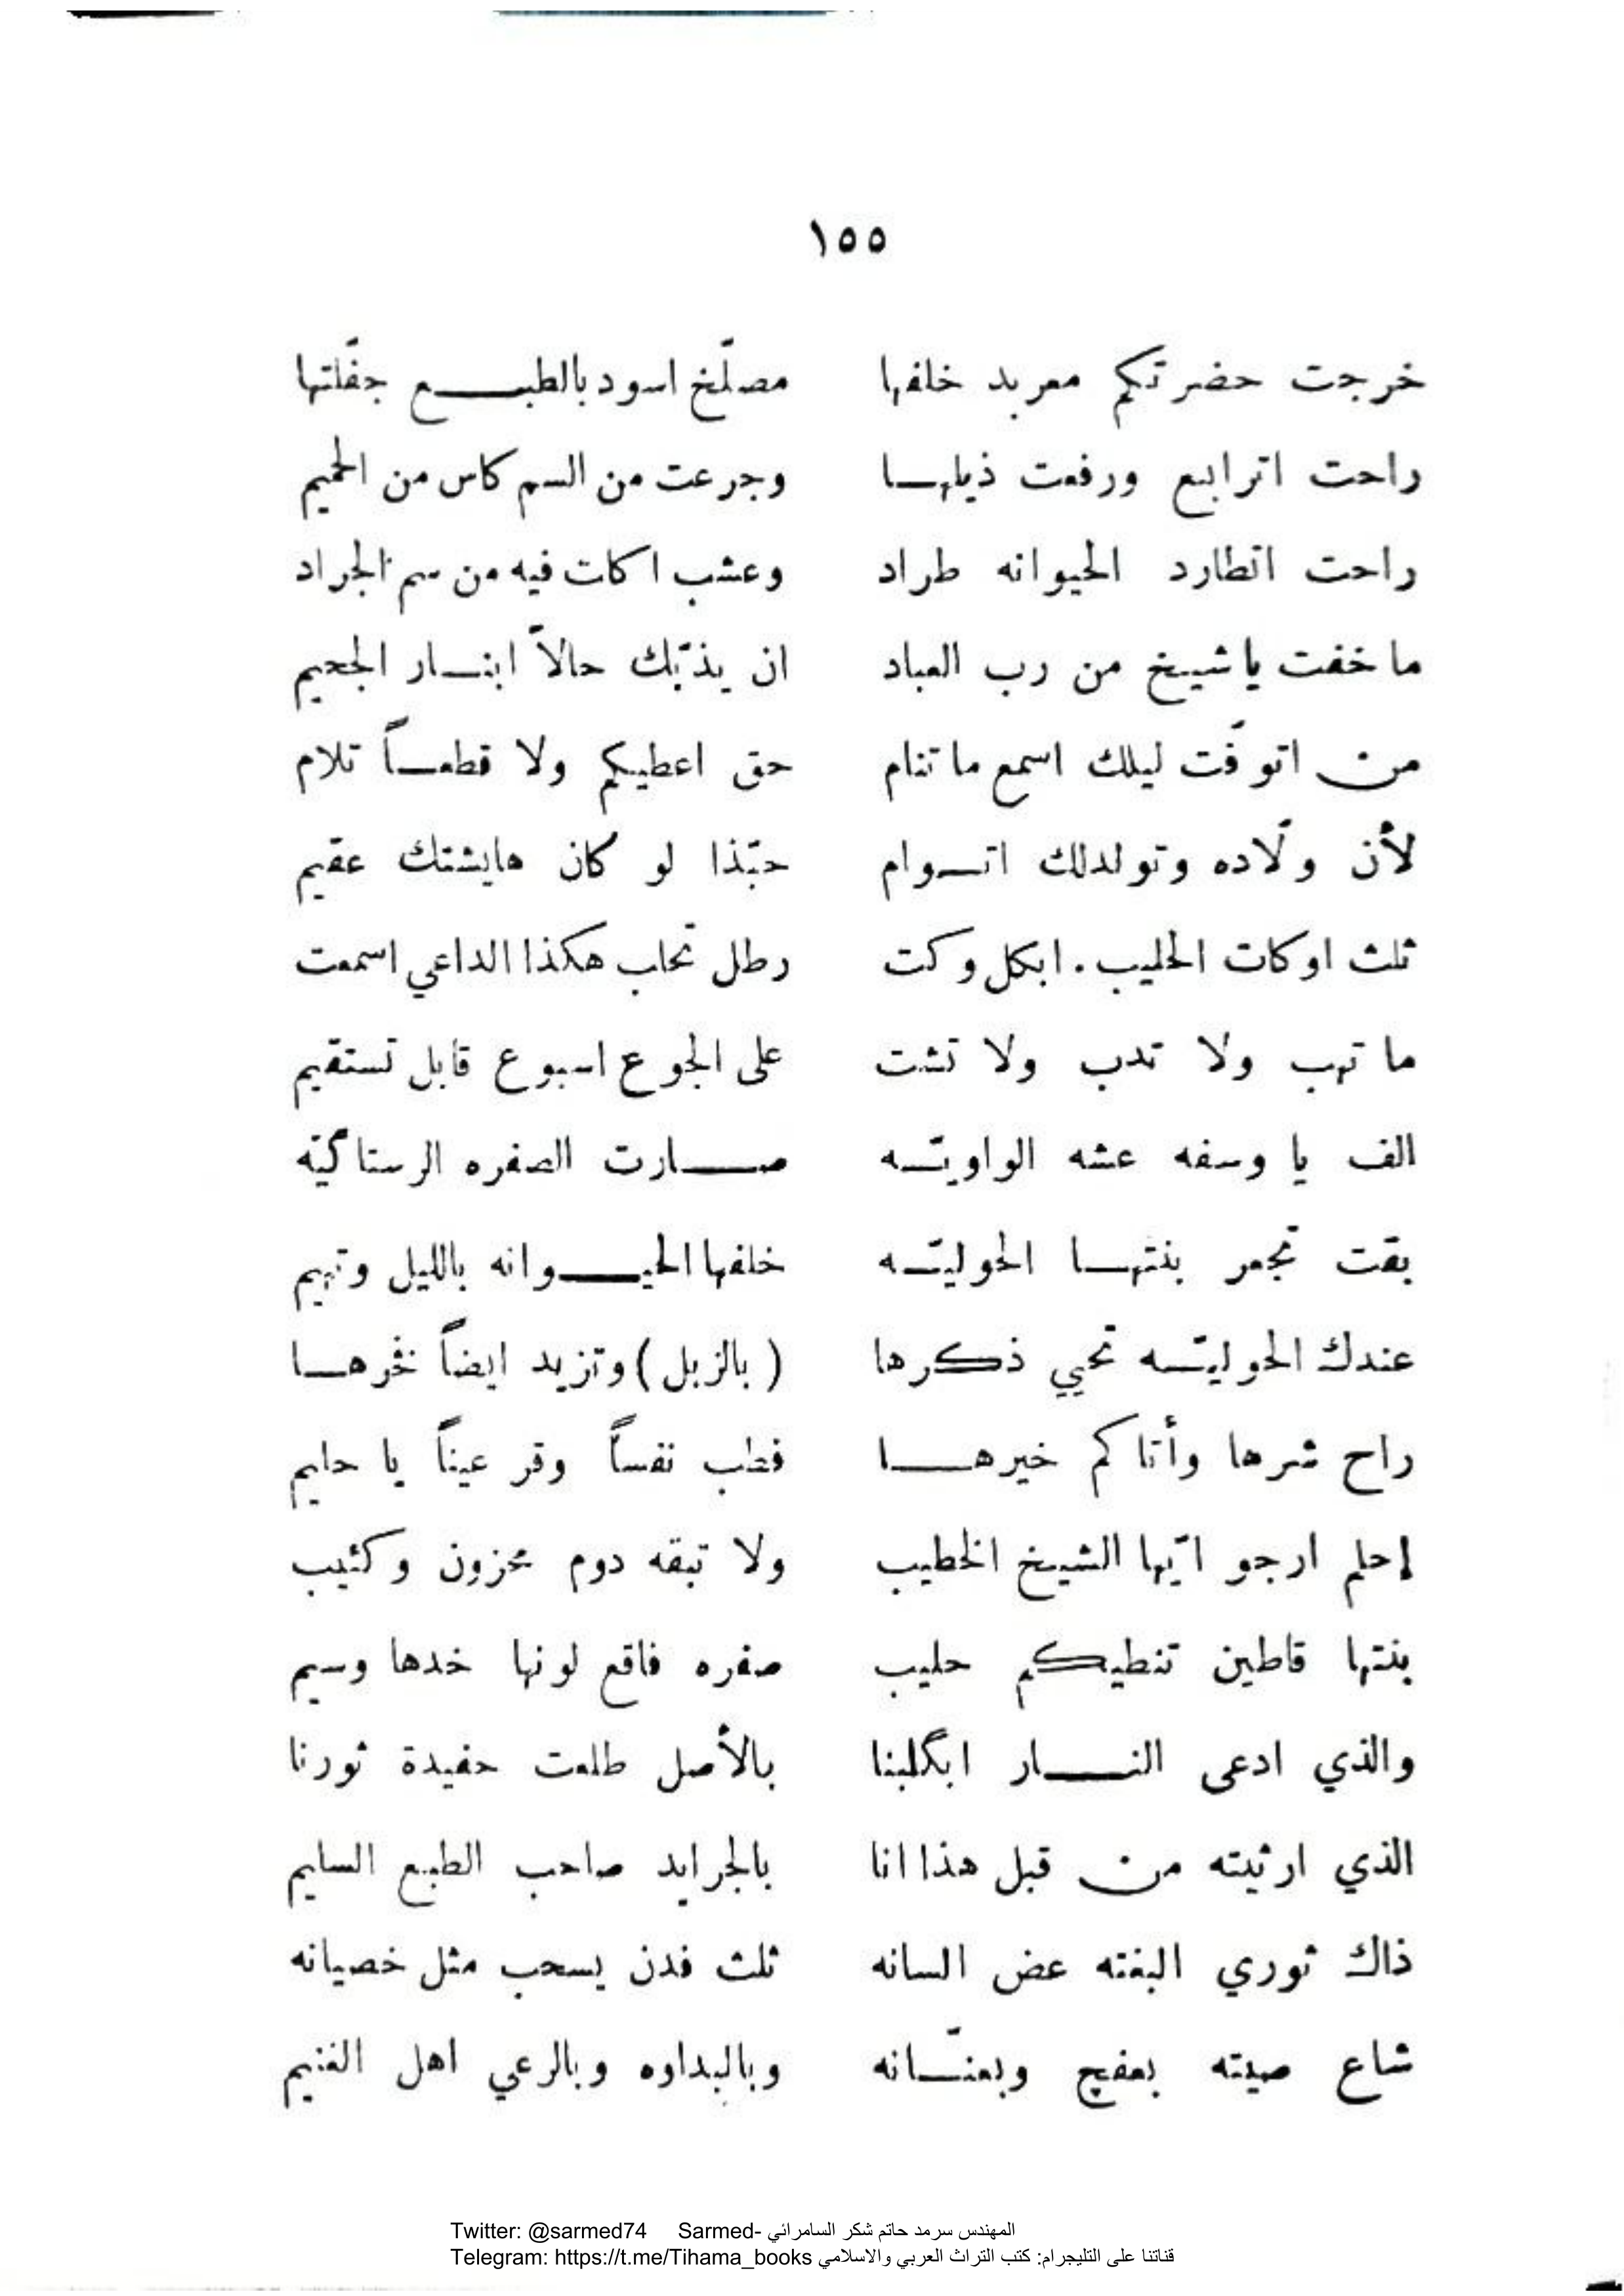 ١٥٥
خرجت حضرتكم معربد خلفها مصلّخ اسود بالطبع جفّلتها
راحت اترابع ورفعت ذيلها وجرعت من السم كاس من الحميم
راحت اتطارد الحيوانه طراد وعشب اكلت فيه من سم الجراد
ما خفت يا شيخ من رب العباد ان يذبّك حالاً ابنار الجحيم
من اتوفّت ليلك اسمع ما تنام حق اعطيكم ولا قطعاً تلام
لأن ولّاده وتولدلك اتوام حبّذا لو كان هايشتك عقيم
ثلث اوكات الحليب . ابكل وكت رطل تحلب هكذا الداعي اسمعت
ما تهب ولا تدب ولا تشت على الجوع اسبوع قابل تستقيم
الف يا وسفه عشه الواويّه صارت الصفره الرستاگيّه
بقت تجعر بنتها الحوليّه خلفها الحيوانه بالليل وتهيم
عندك الحوليّه تحيي ذكرها (بالزبل) وتزيد ايضاً نخرها
راح شرها وأتاكم خيرها فطب نفساً وقر عيناً يا حليم
إحلم ارجو ايّها الشيخ الخطيب ولا تبقه دوم محزون وكئيب
بنتها قاطين تنطيكم حليب صفره فاقع لونها خدها وسيم
والذي ادعى النار ابگلبنا بالأصل طلعت حفيدة ثورنا
الذي ارثيته من قبل هذا انا بالجرايد صاحب الطبع السليم
ذاك ثوري البغته عض السانه ثلث فدن يسحب مثل خصيانه
شاع صيته بعفچ وبعنّانه وبالبداوه وبالرعي اهل الغنيم
Twitter: @sarmed74 Sarmed- المهندس سرمد حاتم شكر السامرائي
Telegram: https://t.me/Tihama_books قناتنا على التليجرام: كتب التراث العربي والاسلامي